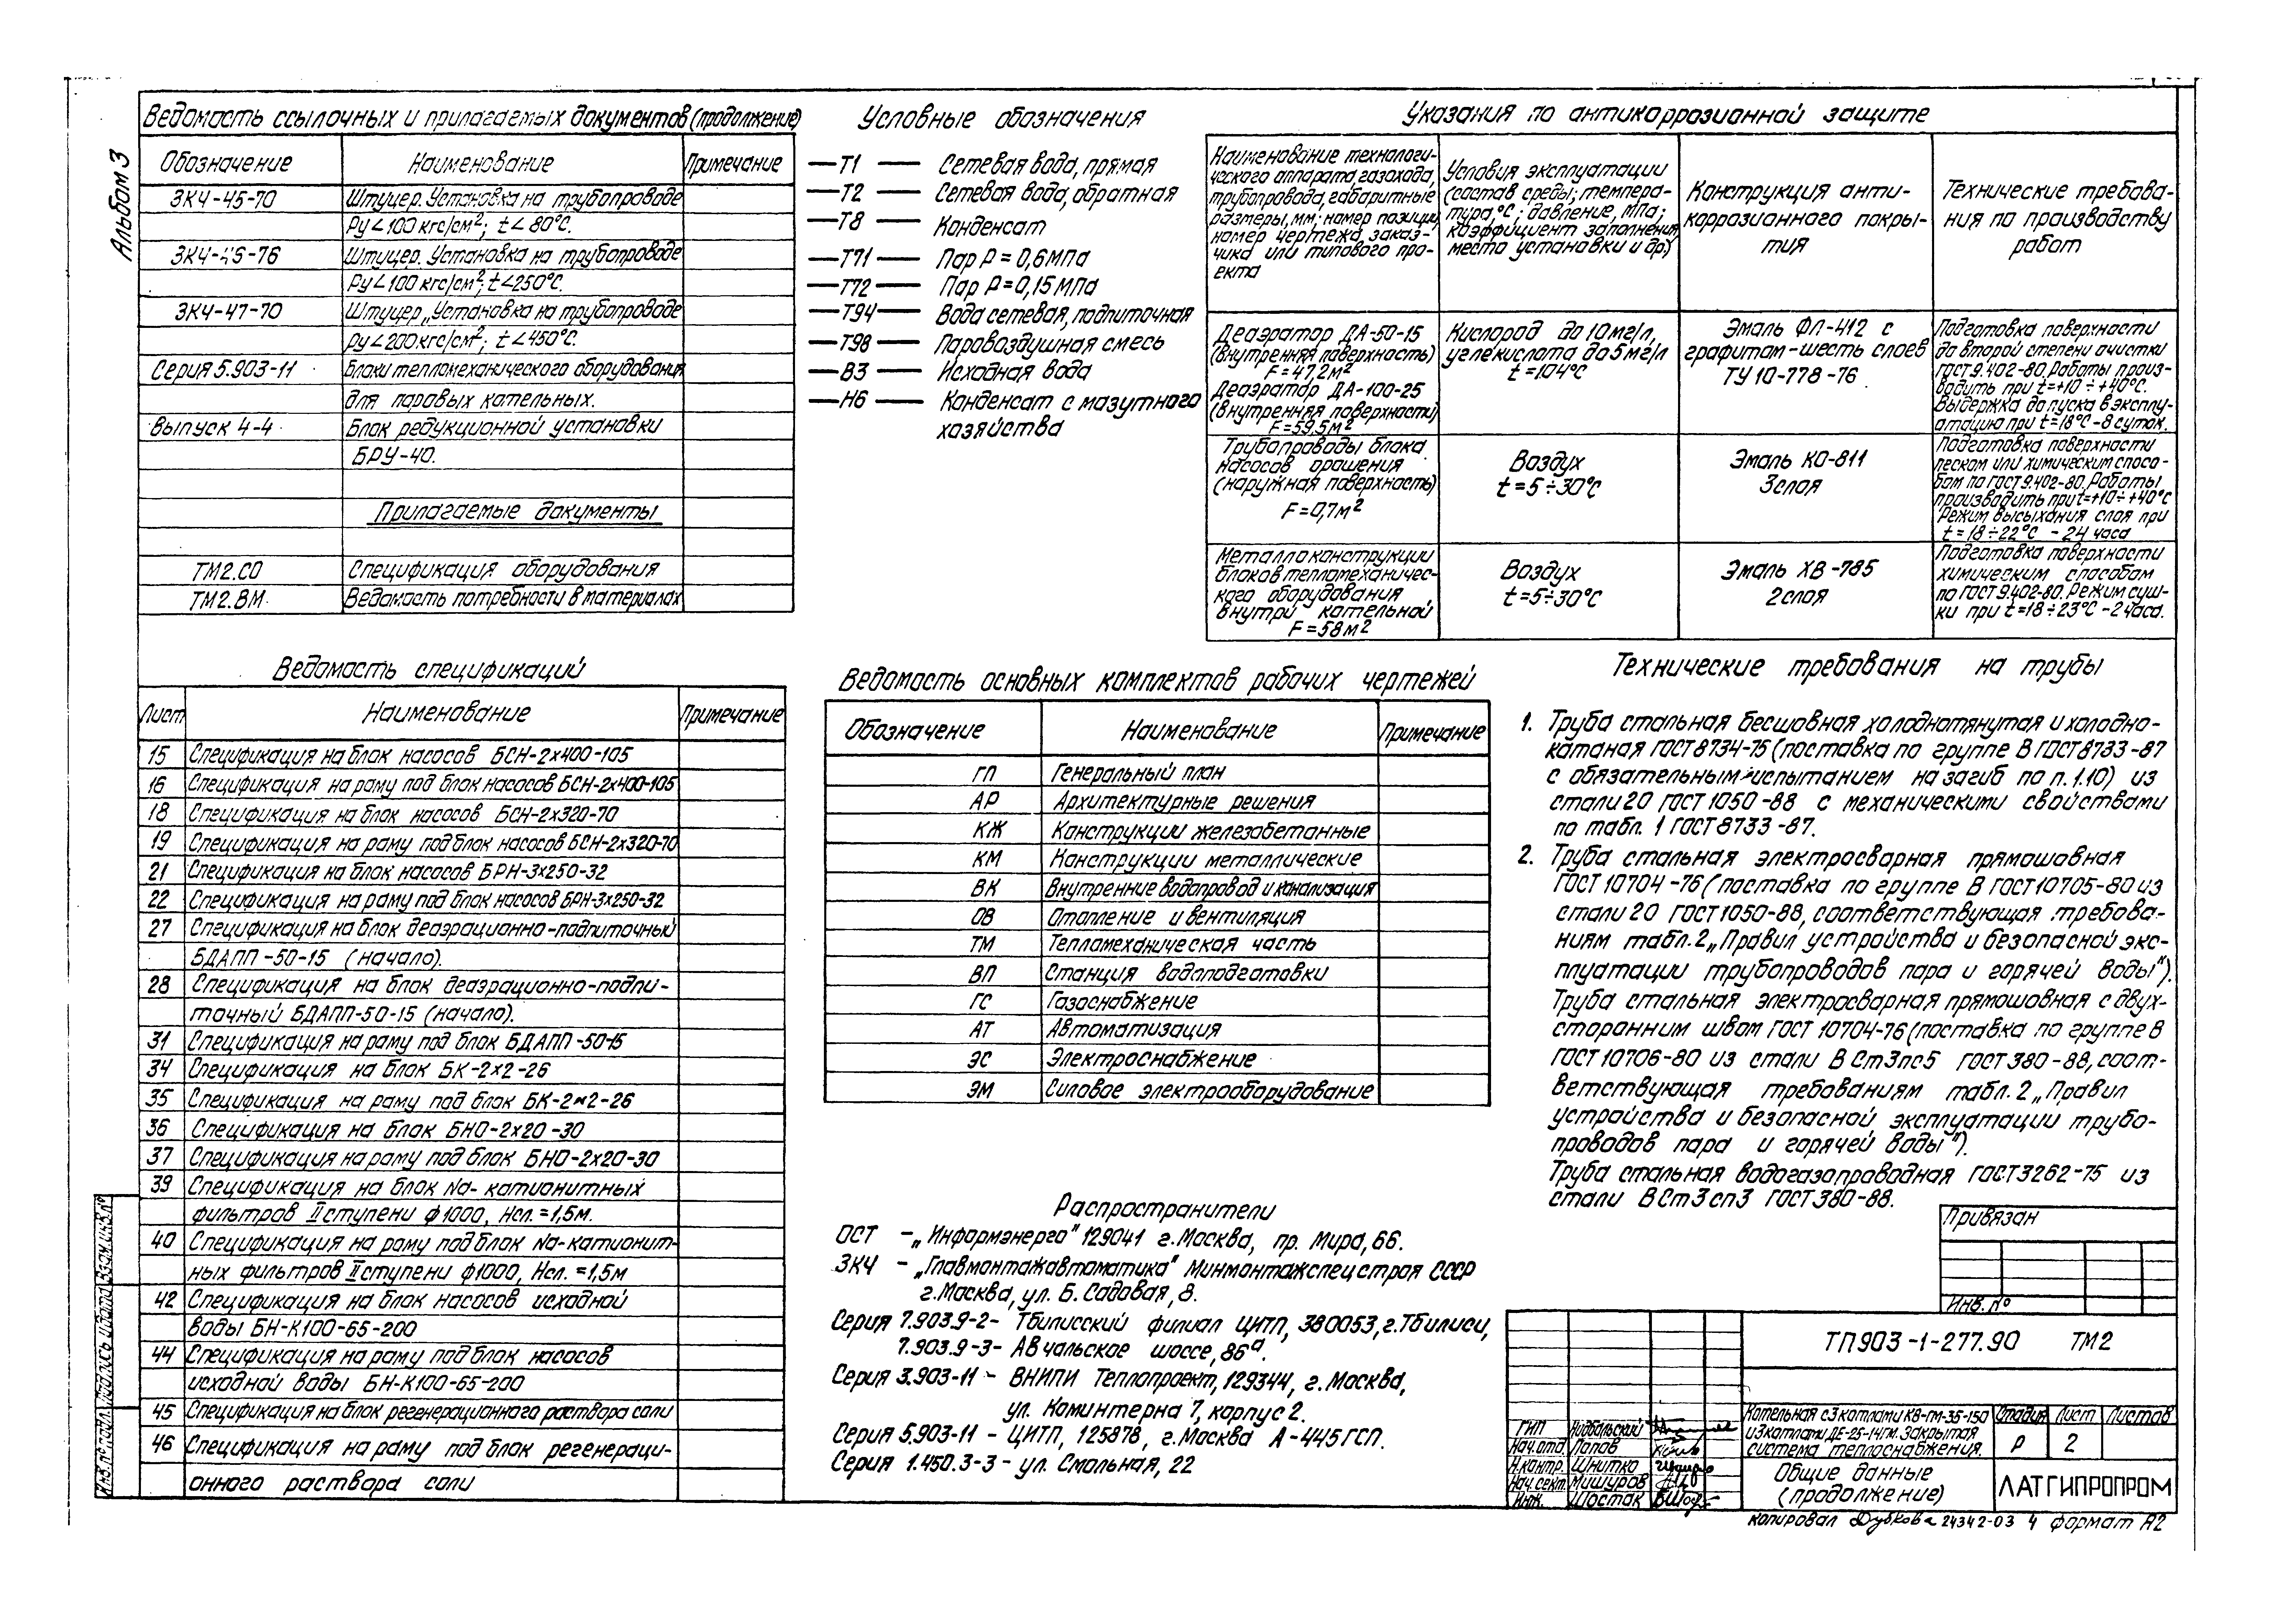 Альбом 3
Ведомость ссылочных и прилагаемых документов (продолжение)
Обозначение Наименование Примечание
ЗКЧ-45-70 Штуцер. Установка на трубопроводе
Ру<100 кгс/см²; t<80°С.
ЗКЧ-46-76 Штуцер. Установка на трубопроводе
Ру<100 кгс/см²; t<250°С.
ЗКЧ-47-70 Штуцер „Установка на трубопроводе
Ру<200 кгс/см²; t<450°С.
Серия 5.903-11 Блоки тепломеханического оборудования
для паровых котельных.
Выпуск 4-4 Блок редукционной установки
БРУ-40.
Прилагаемые документы
ТМ2.СО Спецификация оборудования
ТМ2.ВМ. Ведомость потребности в материалах
Условные обозначения
Т1 Сетевая вода, прямая
Т2 Сетевая вода, обратная
Т8 Конденсат
Т71 Пар Р=0,6МПа
Т72 Пар Р=0,15МПа
Т94 Вода сетевая, подпиточная
Т98 Паровоздушная смесь
В3 Исходная вода
Н6 Конденсат с мазутного
хозяйства
Указания по антикоррозионной защите
Наименование технологи-
ческого аппарата, газохода,
трубопровода, габаритные
размеры, мм; номер позиции,
номер чертежа, заказ-
чика или типового про-
екта
Условия эксплуатации
(состав среды; темпера-
тура,°С; давление, МПа;
коэффициент заполнения
места установки и др.)
Конструкция анти-
коррозионного покры-
тия
Технические требова-
ния по производству
работ
Деаэратор ДА-50-15
(внутренняя поверхность)
F=47,2м²
Деаэратор ДА-100-25
(внутренняя поверхность)
F=59,5м²
Кислород до 10мг/л,
углекислота до 5мг/л
t=104°С
Эмаль ФЛ-412 с
графитом-шесть слоев
ТУ 10-778-76
Подготовка поверхности
до второй степени очистки
ГОСТ 9.402-80. Работы произ-
водить при t=+10÷+40°С.
Выдержка до пуска в эксплу-
атацию при t=18°С-8 суток.
Трубопроводы блока
насосов орошения
(наружная поверхность)
F=0,7м²
Воздух
t=5÷30°С
Эмаль КО-811
3слоя
Подготовка поверхности
песком или химическим спосо-
бом по ГОСТ 9.402-80. Работы
производить при t=+10÷+40°С
Режим высыхания слоя при
t=18÷22°С - 24 часа
Металлоконструкции
блоков тепломеханичес-
кого оборудования
внутри котельной
F=58м²
Воздух
t=5÷30°С
Эмаль ХВ-785
2слоя
Подготовка поверхности
химическим способом
по ГОСТ 9.402-80. Режим суш-
ки при t=18÷23°С-2часа.
Ведомость спецификаций
Лист Наименование Примечание
15 Спецификация на блок насосов БСН-2х400-105
16 Спецификация на раму под блок насосов БСН-2х400-105
18 Спецификация на блок насосов БСН-2х320-70
19 Спецификация на раму под блок насосов БСН-2х320-70
21 Спецификация на блок насосов БРН-3х250-32
22 Спецификация на раму под блок насосов БРН-3х250-32
27 Спецификация на блок деаэрационно-подпиточный
БДАПП-50-15 (начало).
28 Спецификация на блок деаэрационно-подпи-
точный БДАПП-50-15 (начало).
31 Спецификация на раму под блок БДАПП-50-15
34 Спецификация на блок БК-2х2-26
35 Спецификация на раму под блок БК-2х2-26
36 Спецификация на блок БНО-2х20-30
37 Спецификация на раму под блок БНО-2х20-30
39 Спецификация на блок Na-катионитных
фильтров II ступени ф1000, Нсл.=1,5м.
40 Спецификация на раму под блок Na-катионит-
ных фильтров II ступени ф1000, Нсл.=1,5м
42 Спецификация на блок насосов исходной
воды БН-К100-65-200
44 Спецификация на раму под блок насосов
исходной воды БН-К100-65-200
45 Спецификация на блок регенерационного раствора соли
46 Спецификация на раму под блок регенераци-
онного раствора соли
Ведомость основных комплектов рабочих чертежей
Обозначение Наименование Примечание
ГП Генеральный план
АР Архитектурные решения
КЖ Конструкции железобетонные
КМ Конструкции металлические
ВК Внутренние водопровод и канализация
ОВ Отопление и вентиляция
ТМ Тепломеханическая часть
ВП Станция водоподготовки
ГС Газоснабжение
АТ Автоматизация
ЭС Электроснабжение
ЭМ Силовое электрооборудование
Распространители
ОСТ -„Информэнерго" 129041 г.Москва, пр. Мира, 66.
ЗКЧ -„Главмонтажавтоматика" Минмонтажспецстроя СССР
г.Москва, ул. Б. Садовая, 8.
Серия 7.903.9-2- Тбилисский филиал ЦИТП, 380053, г.Тбилиси,
7.903.9-3- Авчальское шоссе, 86а.
Серия 3.903-11 - ВНИПИ Теплопроект, 129344, г.Москва,
ул. Коминтерна 7, корпус 2.
Серия 5.903-11 - ЦИТП, 125878, г.Москва А-445 ГСП.
Серия 1.450.3-3 - ул. Смольная, 22
Технические требования на трубы
1. Труба стальная бесшовная холоднотянутая и холодно-
катаная ГОСТ 8734-75 (поставка по группе В ГОСТ 8733-87
с обязательным испытанием на загиб по п.1.10) из
стали 20 ГОСТ 1050-88 с механическими свойствами
по табл. 1 ГОСТ 8733-87.
2. Труба стальная электросварная прямошовная
ГОСТ 10704-76 (поставка по группе В ГОСТ 10705-80 из
стали 20 ГОСТ 1050-88, соответствующая требова-
ниям табл.2 „Правил устройства и безопасной экс-
плуатации трубопроводов пара и горячей воды").
Труба стальная электросварная прямошовная с двух-
сторонним швом ГОСТ 10704-76 (поставка по группе В
ГОСТ 10706-80 из стали ВСт3пс5 ГОСТ 380-88, соот-
ветствующая требованиям табл.2 „Правил
устройства и безопасной эксплуатации трубо-
проводов пара и горячей воды").
Труба стальная водогазопроводная ГОСТ 3262-75 из
стали ВСт3сп3 ГОСТ 380-88.
Привязан
Инв. №
ТП903-1-277.90 ТМ2
ГИП Нидбальский
Нач.отд. Попов
Н.контр. Шнитко
Нач.сект. Мишуров
Инж. Шостак
Котельная с 3 котлами КВ-ГМ-35-150
и 3 котлами ДЕ-25-14ГМ. Закрытая
система теплоснабжения.
Стадия Лист Листов
Р 2
Общие данные
(продолжение)
ЛАТГИПРОПРОМ
Копировал Дубкова 24342-03 4 формат А2
Инв.№ подл. Подпись и дата Взам.инв.№